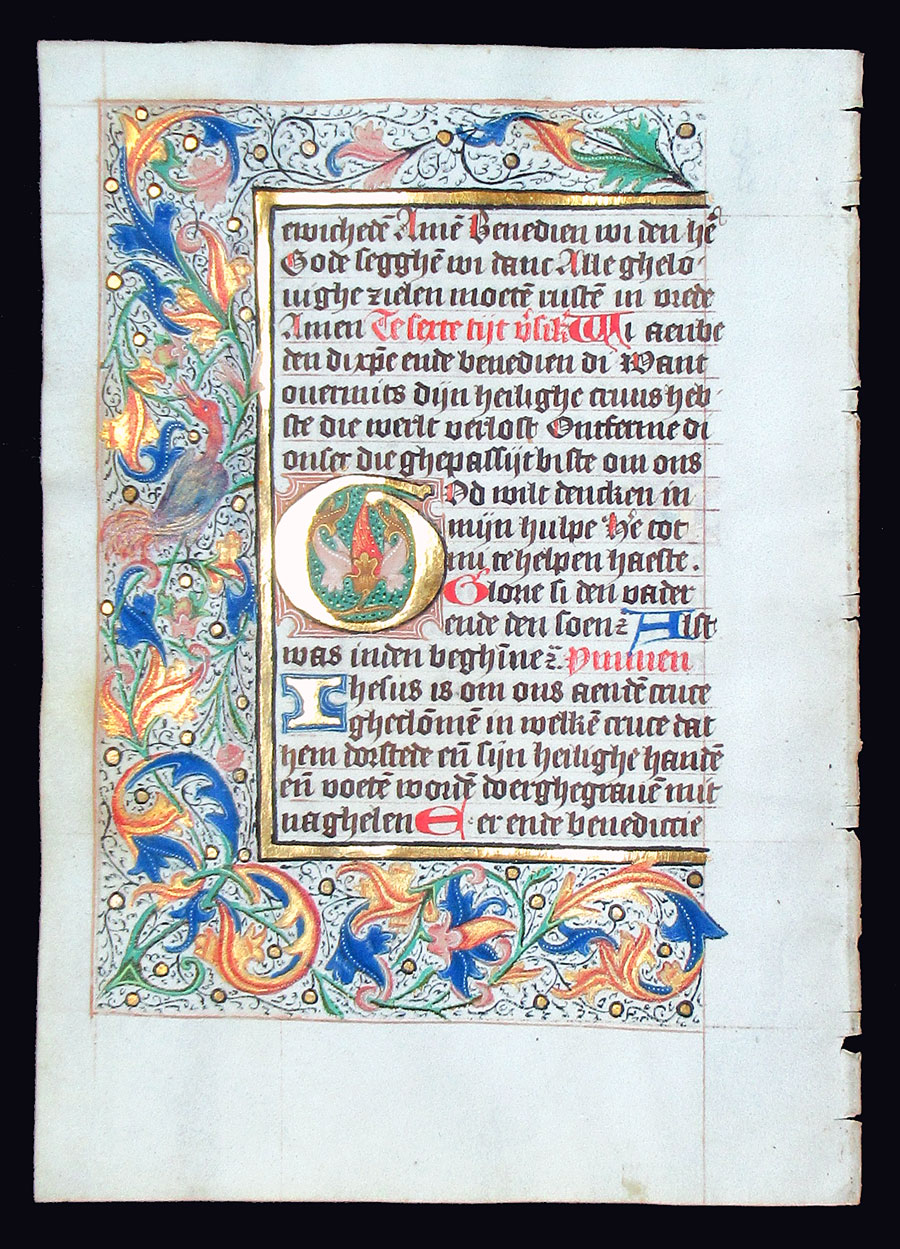 ewichedē Amē Benedien wi den hē
Gode segghē wi danc Alle ghelo
uighe zielen moetē rustē in vrede
Amen Te sexte tijt v̄sik᷒ Wi aenbe
den di xp̄e ende benedien di Want
ouermits dijn heilighe cruus heb
ste die werlt verlost Ontferme di
onser die ghepassijt biste om ons
God wilt dencken in
mijn hulpe He tot
mi te helpen haeste.
Glorie si den vader
ende den soen ꝛ̄ Alst
was inden beghīne ꝛ̄. Ymmen
Ihesus is om ons aendē cruce
gheclōmē in welkē cruce dat
hem dorstede eñ sijn heilighe handē
eñ voetē wordē doerghegrauē mit
naghelen E er ende benedictie